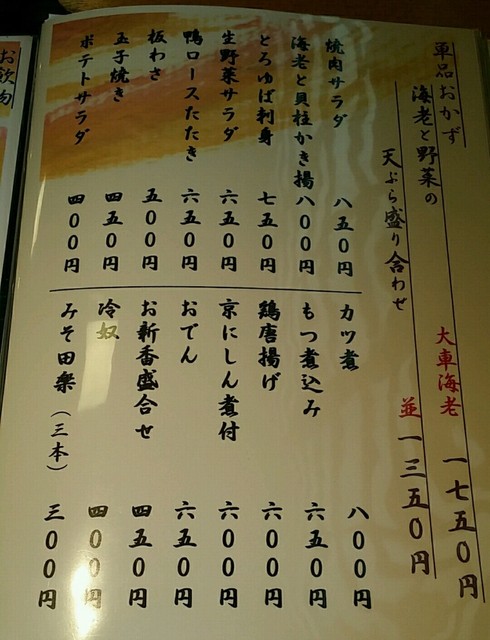 単品おかず
海老と野菜の
天ぷら盛り合わせ
大車海老 一七五〇円
並 一三五〇円
焼肉サラダ 八五〇円
海老と貝柱かき揚 八〇〇円
とろゆば刺身 七五〇円
生野菜サラダ 六五〇円
鴨ロースたたき 六五〇円
板わさ 五〇〇円
玉子焼き 四五〇円
ポテトサラダ 四〇〇円
カツ煮 八〇〇円
もつ煮込み 六五〇円
鶏唐揚げ 六〇〇円
京にしん煮付 六〇〇円
おでん 六五〇円
お新香盛合せ 四五〇円
冷奴 四〇〇円
みそ田楽(三本) 三〇〇円
お飲物